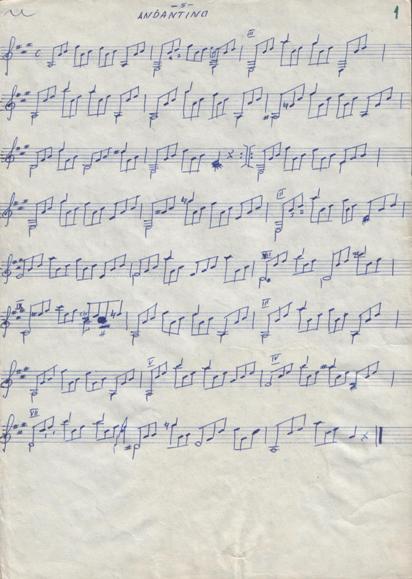 -5-
ANDANTINO
1
C
III
II
VII
IX
IV
V
IV
VII